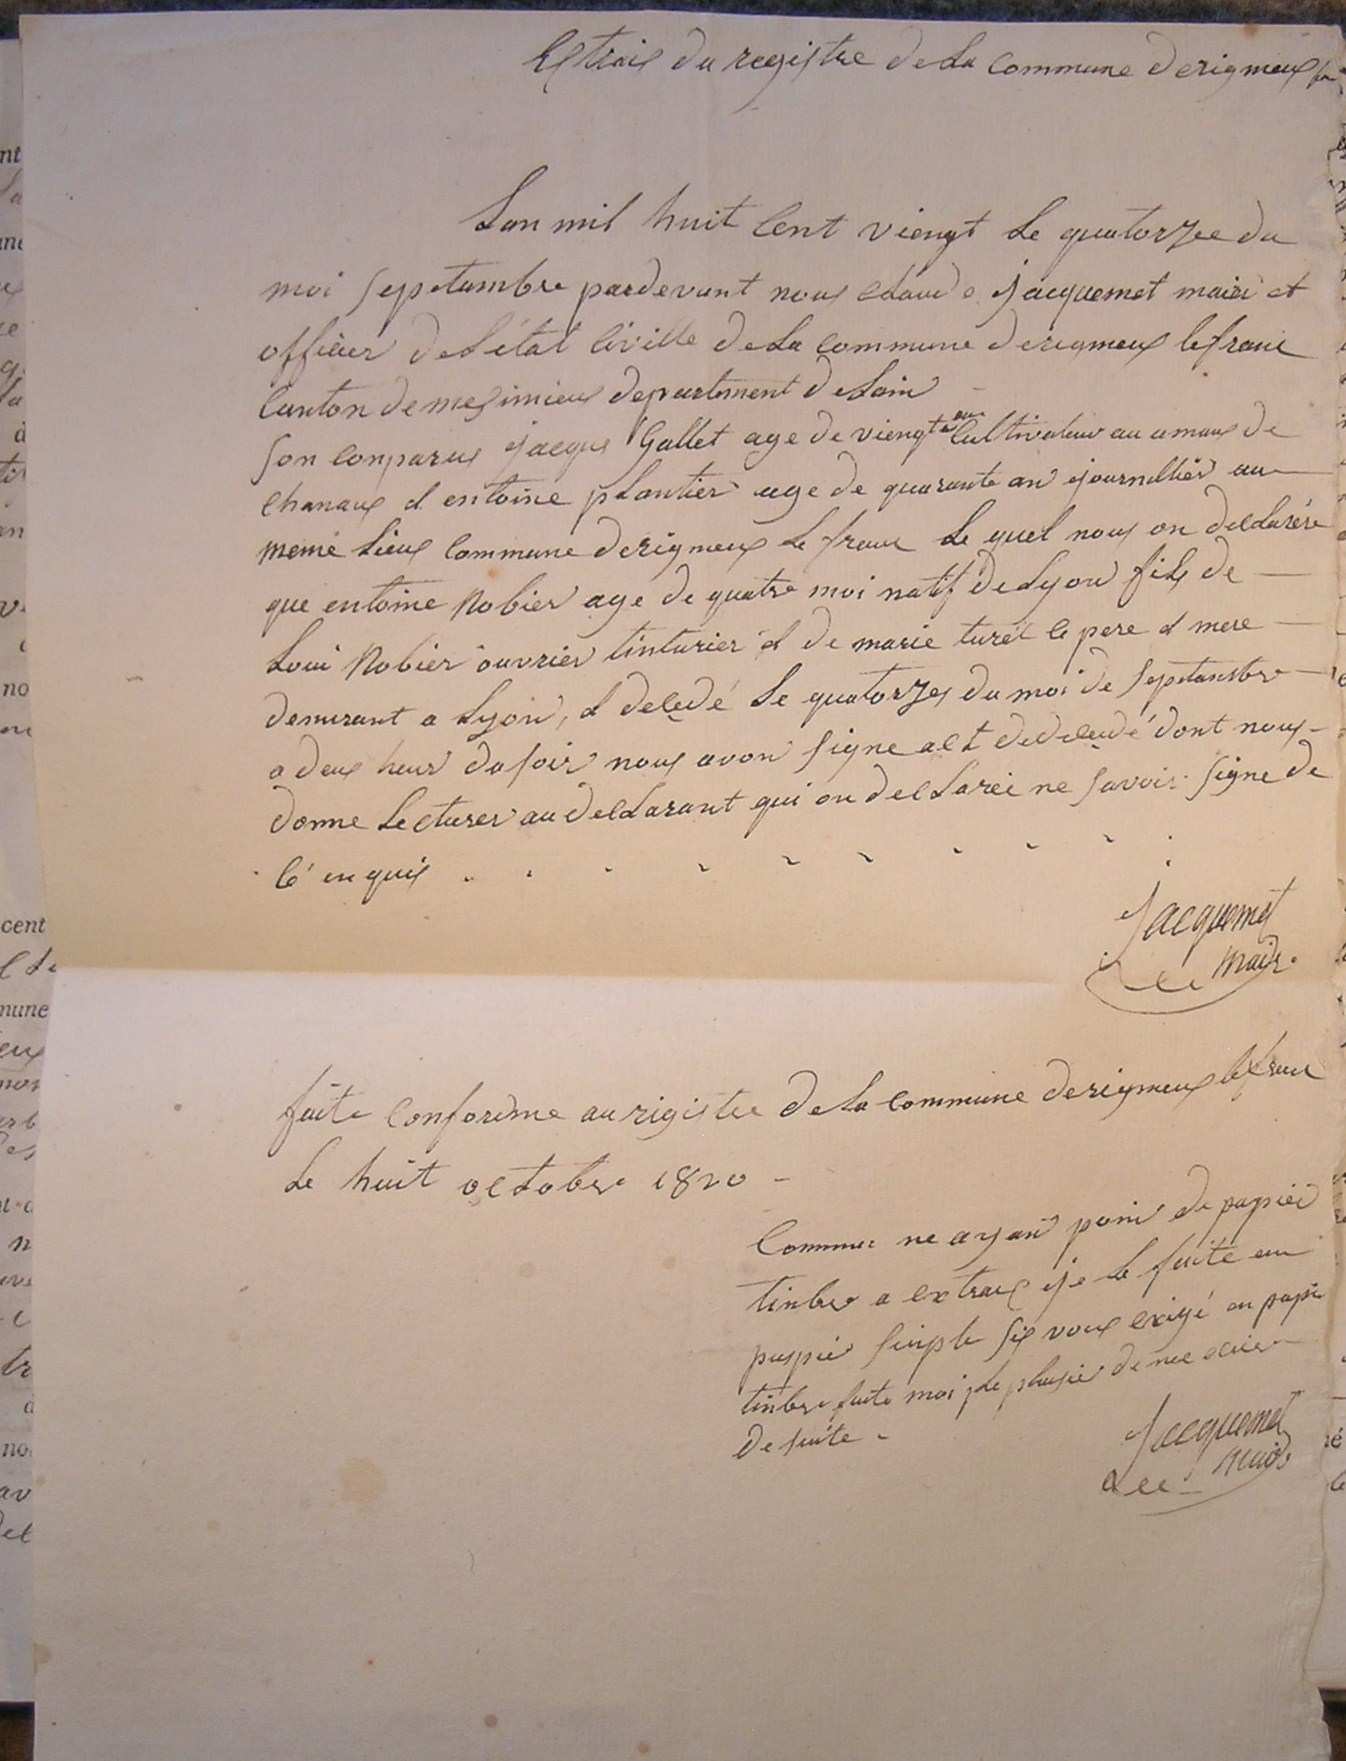 Extrais du registre de La Commune derigneux
Lan mil huit Cent viengt Le quatorzee du
moi Septambre pardevant nous claude jacquemet maire et
officier deLétat Civille deLa commune derigneux lefranc
Canton demeximieux departement deLain
Son Conparus jacque Gallet age de viengt an Cultivateur au amaux de
Chanaux et entoine plantier age de quarante an journallier au
meme Lieux Commune derigneux Le franc Le quel nous on declarére
que entoine Nobier age de quatre moi natif deLyon fils de
Loui Nobier ouvrier tinturier et de marie turel le pere et mere
demurant a Lyon, et decedé Le quatorzes du moi de Septanbre
a deux heur dusoir nous avon Signe act dedecedé dont nous
donne Lecturer au decLarant qui on decLareé ne Savoir Signe de
Cé enquis
Jacquemet
Maire
faite Conforême au rigistre deLa Commune derigneux lefranc
Le huit octobre 1820
Comme ne ayan poin de papiér
tinbre a extraix je Le faite en
papier Simple Six vous exigé en papié
tinbre faite moi Le plasier de me ecrire
de Suite
Jacquemet
Maire